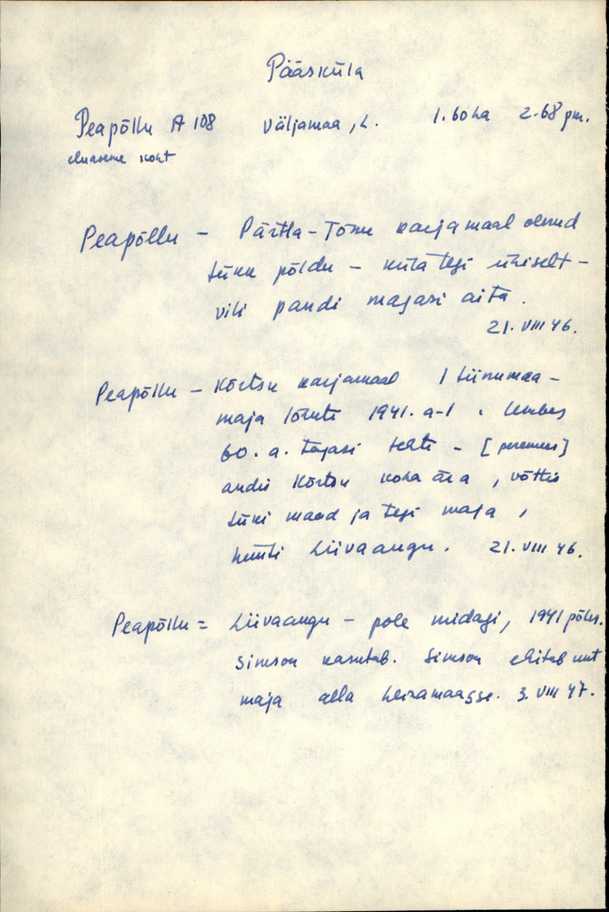 Pääsküla
Peapõllu A 108 Väljamaa, L. 1.60 ha 2.68 pm.
eluaseme koht
Peapõllu – Pärtla-Tõnu karjamaal olnud
tükk põldu – küla tegi ühiselt –
vili pandi magasi aita.
21. VIII 46.
Peapõllu – Kõrtsu karjamaal
maja 1941. a-l. Umbes
60. a. tagasi
andis Kõrtsu koha ära, võttis
tüki maad ja tegi maja,
hüüti Liivaaugu. 21. VIII 46.
Peapõllu = Liivaaugu – pole midagi, 1941 põles.
Simson kasutab. Simson ehitab uut
maja alla heinamaasse. 3. VIII 47.